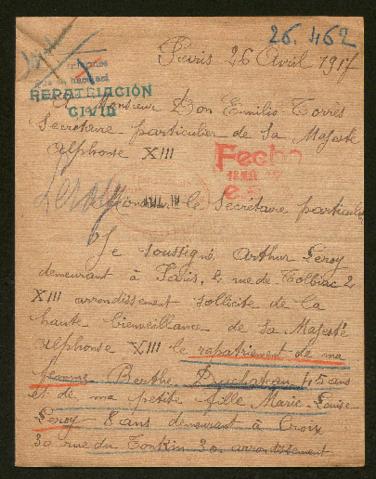 26.462
Paris 26 Avril 1917
REPATRIACIÓN
CIVIL
A Monsieur Don Emilio Torrès
Secretaire particulier de Sa Majesté
Alphonse XIII
Fecho
Leroy
Monsieur le Secrétaire particulier
Je soussigné Arthur Leroy
demeurant à Paris, 2 rue de Tolbiac 2
XIII arrondissement sollicite de la
haute bienveillance de Sa Majesté
Alphonse XIII le rapatriement de ma
femme Berthe Duchateau 45 ans
et de ma petite fille Marie-Louise
Leroy 8 ans demeurant à Croix
30 rue du Tonkin 30 arrondissement